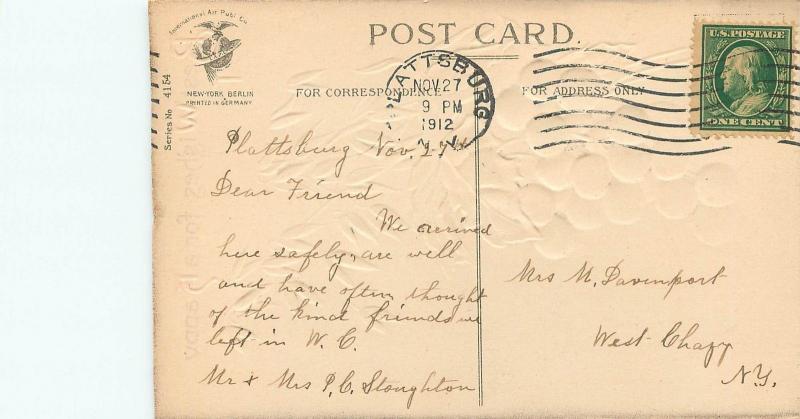 International Art Publ. Co.
NEW-YORK BERLIN
PRINTED IN GERMANY
Series No 4154
POST CARD.
FOR CORRESPONDENCE
FOR ADDRESS ONLY
PLATTSBURG
NOV 27
9 PM
1912
N.Y.
U.S. POSTAGE
ONE CENT
Plattsburg Nov. 27th
Dear Friend
We arrived
here safely, are well
and have often thought
of the kind friends we
left in W. C.
Mr & Mrs P. C. Stoughton
Mrs M. Davenport
West Chazy
N.Y.